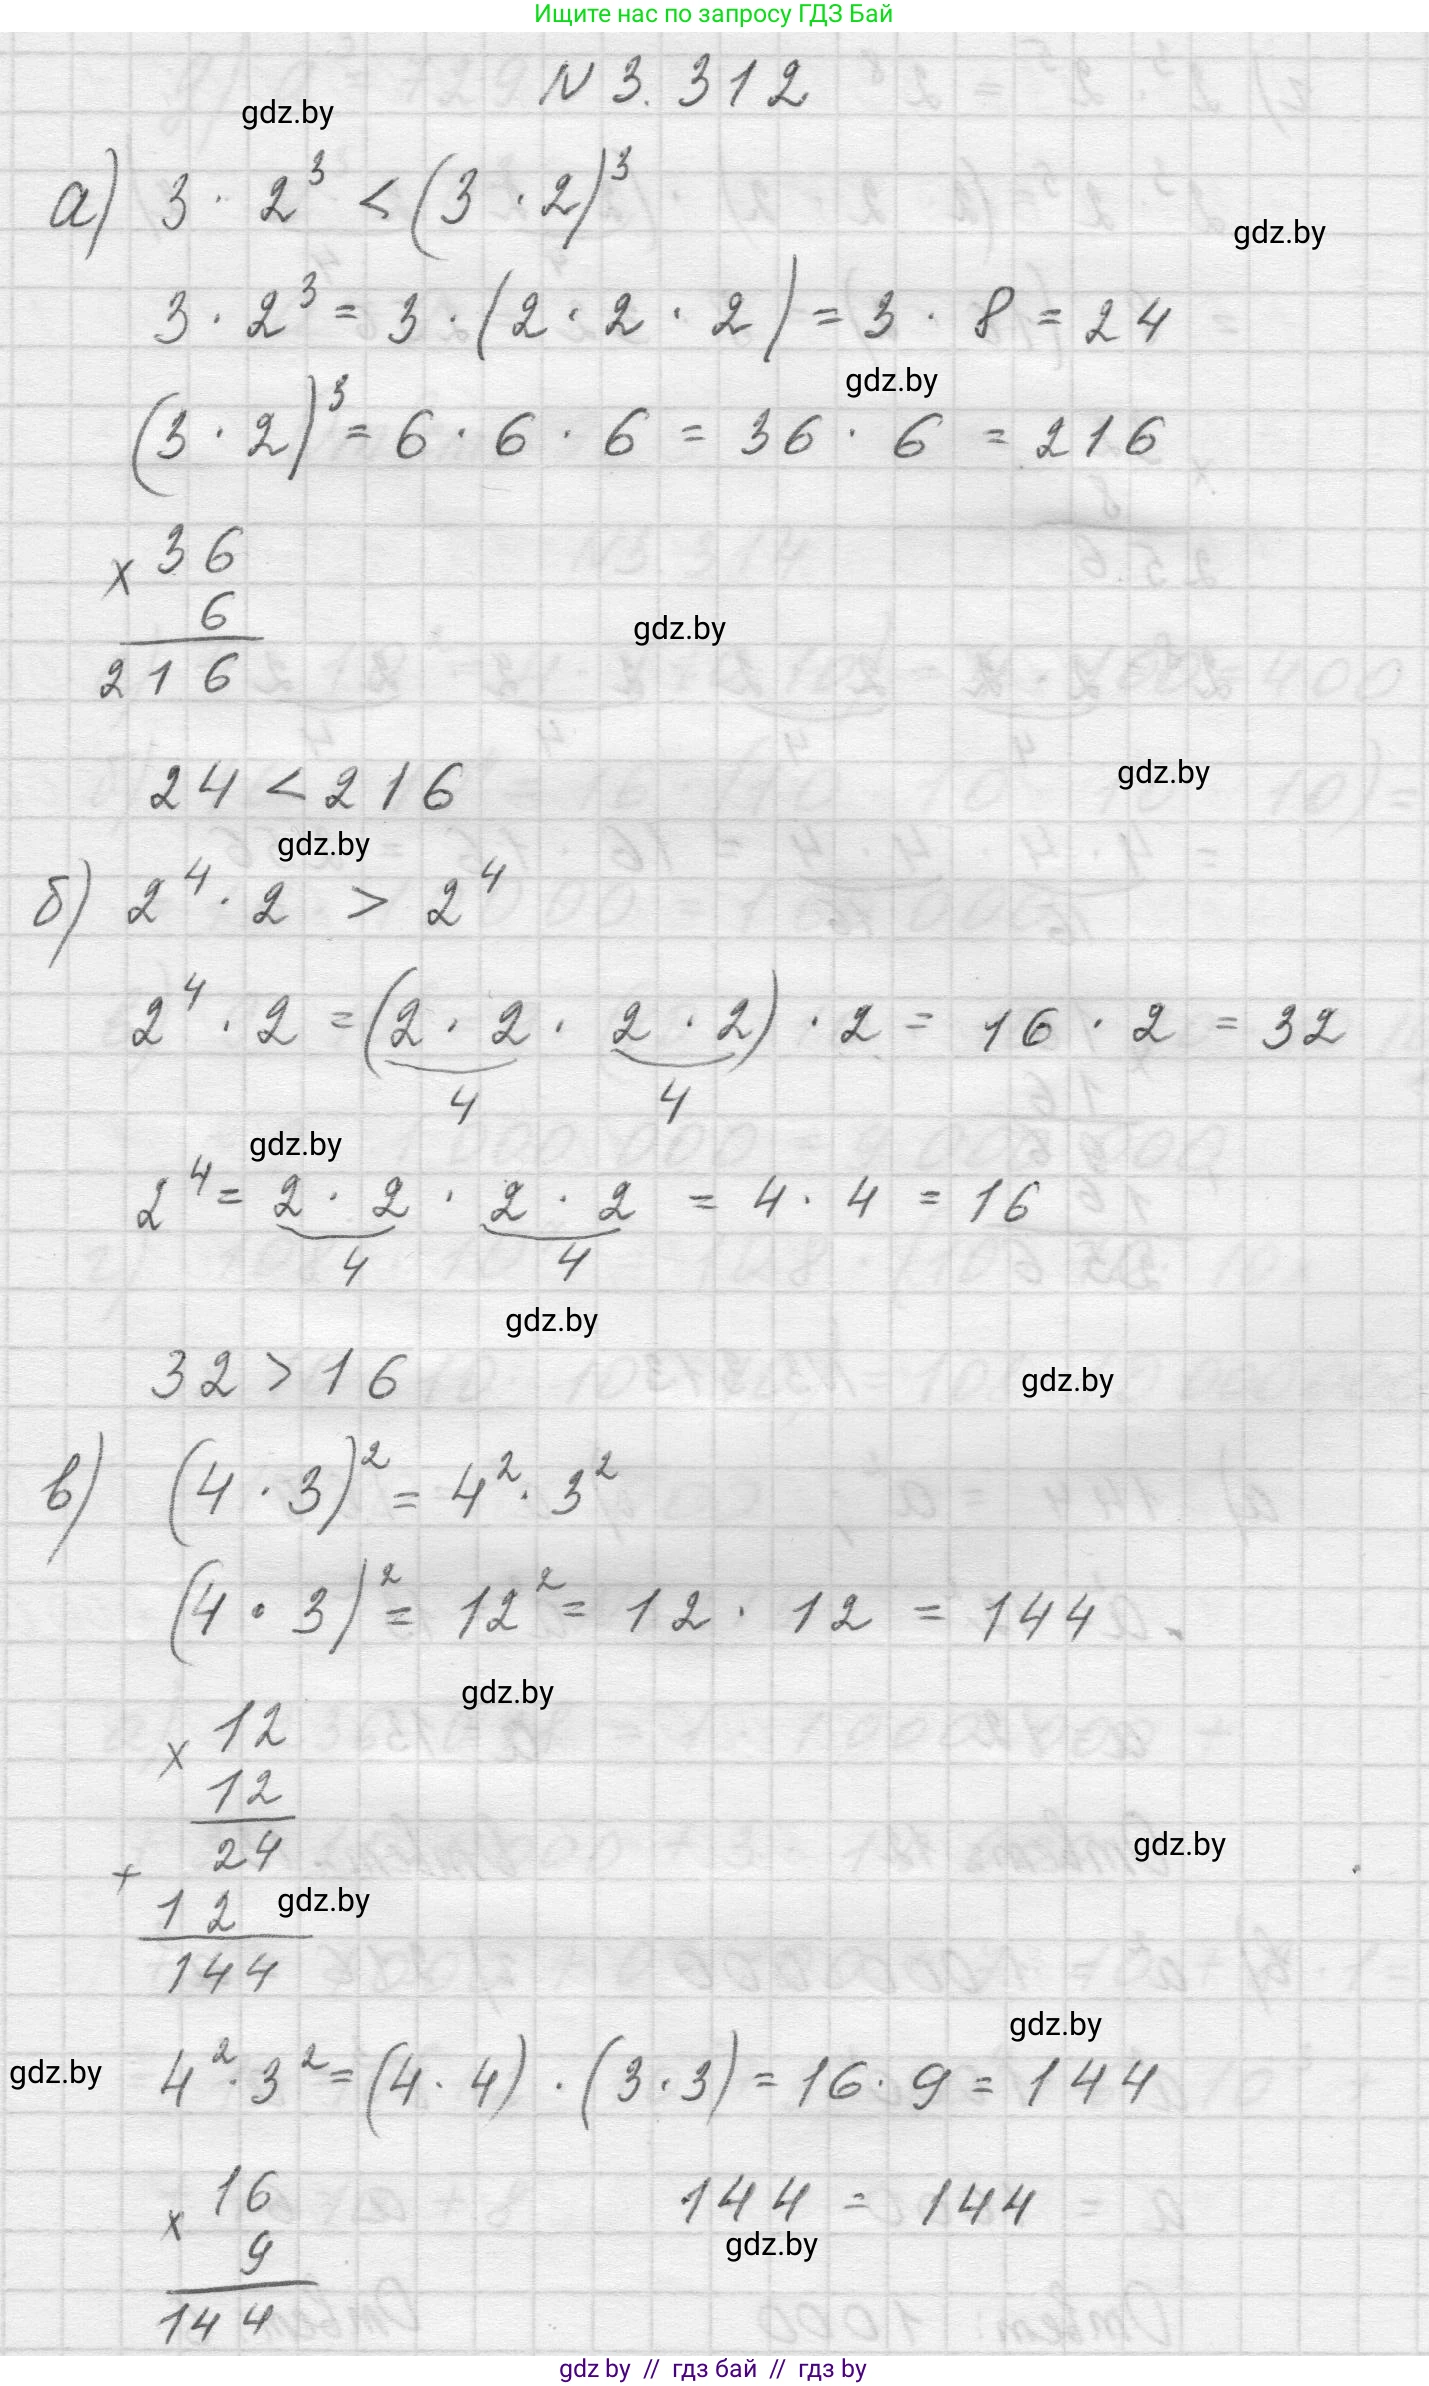 Ищите нас по запросу ГДЗ Бай
N 3.312
gdz.by
а) 3 · 2³ < (3 · 2)³
gdz.by
3 · 2³ = 3 · (2 · 2 · 2) = 3 · 8 = 24
gdz.by
(3 · 2)³ = 6 · 6 · 6 = 36 · 6 = 216
x 36
6
gdz.by
216
24 < 216
gdz.by
gdz.by
б) 2⁴ · 2 > 2⁴
2⁴ · 2 = (2 · 2 · 2 · 2) · 2 = 16 · 2 = 32
4 4
gdz.by
2⁴ = 2 · 2 · 2 · 2 = 4 · 4 = 16
4 4
gdz.by
32 > 16
gdz.by
в) (4 · 3)² = 4² · 3²
(4 · 3)² = 12² = 12 · 12 = 144
gdz.by
x 12
12
24
gdz.by
+ 12
gdz.by
144
gdz.by
gdz.by
4² · 3² = (4 · 4) · (3 · 3) = 16 · 9 = 144
x 16
144 = 144
9
gdz.by
144
gdz by // гдз бай // гдз by